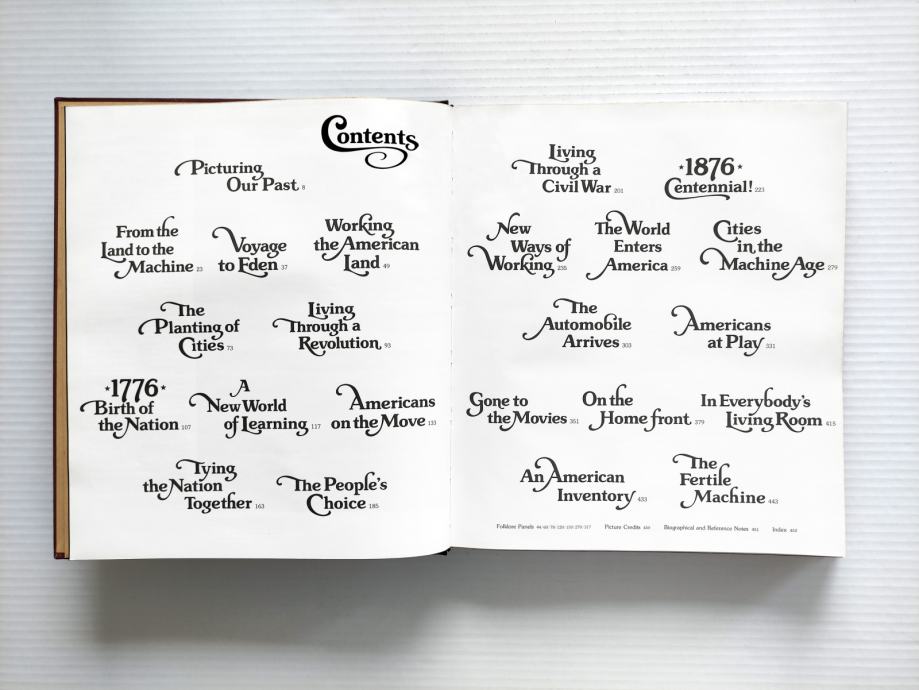 Contents
Picturing
Our Past 8
From the
Land to the
Machine 23
Voyage
to Eden 37
Working
the American
Land 49
The
Planting of
Cities 73
Living
Through a
Revolution 93
★1776★
Birth of
the Nation 107
A
New World
of Learning 117
Americans
on the Move 133
Tying
the Nation
Together 163
The People's
Choice 185
Living
Through a
Civil War 201
★1876★
Centennial! 223
New
Ways of
Working 235
The World
Enters
America 259
Cities
in the
Machine Age 279
The
Automobile
Arrives 303
Americans
at Play 331
Gone to
the Movies 351
On the
Home front 379
In Everybody's
Living Room 415
An American
Inventory 433
The
Fertile
Machine 443
Folklore Panels Picture Credits Biographical and Reference Notes Index